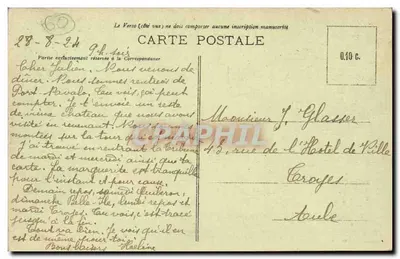 Le Verso (côté vue) ne doit comporter aucune inscription manuscrite
CARTE POSTALE
Partie exclusivement réservée à la Correspondance
0.10 c.
28-8-24 9h soir
Cher Julien, Nous venons de
dîner. Nous sommes rentrées de
Port Navalo, tu vois, ça peut
compter. Je t'envoie un reste
de vieux chateau que nous avons
visité en revenant. Nous
montées sur la tour
J'ai trouvé en rentrant
de mardi et mercredi ainsi que ta
carte. La marguerite est tranquille
pour l'instant et pour cause.
Demain repos, samedi Quiberon,
dimanche Belle-Ile, lundi repos et
mardi Troyes. Tu vois, c'est tracé
jusqu'à la fin.
Tout va bien. Je vois qu'il en
est de même pour toi.
Bons baisers Hélène
Monsieur J. Glasser
43, rue de l'Hotel de Ville
Troyes
Aube
DELCAMPE